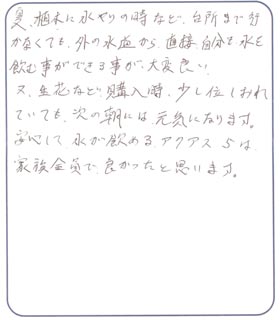 夏、植木に水やりの時など、台所まで行
かなくても、外の水道から、直接自分も水を
飲む事ができる事が、大変良い。
又、生花など、購入時、少し位しおれ
ていても、次の朝には、元気になります。
安心して、水が飲める、アクアス5は、
家族全員で、良かったと思います。